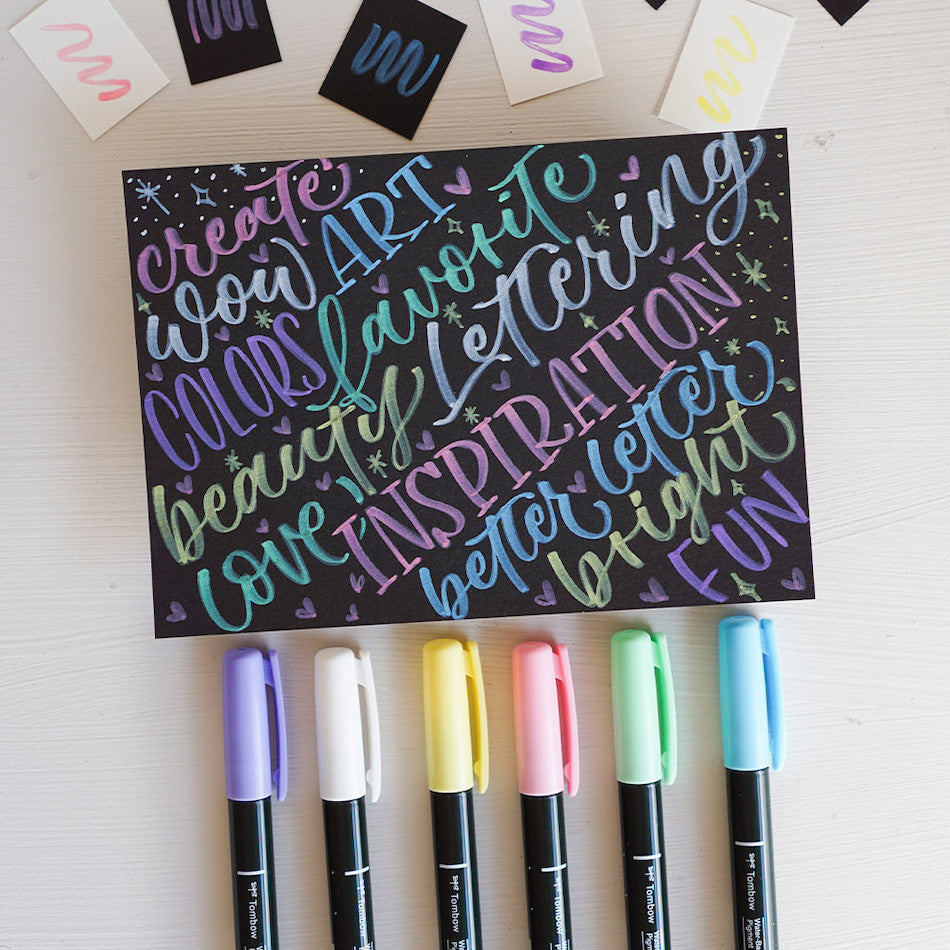 create
wow ART
COLORS favorite Lettering
beauty
love, INSPIRATION
better letter
bright
FUN
Tombow
Tombow
Tombow
Tombow
Tombow
Tombow